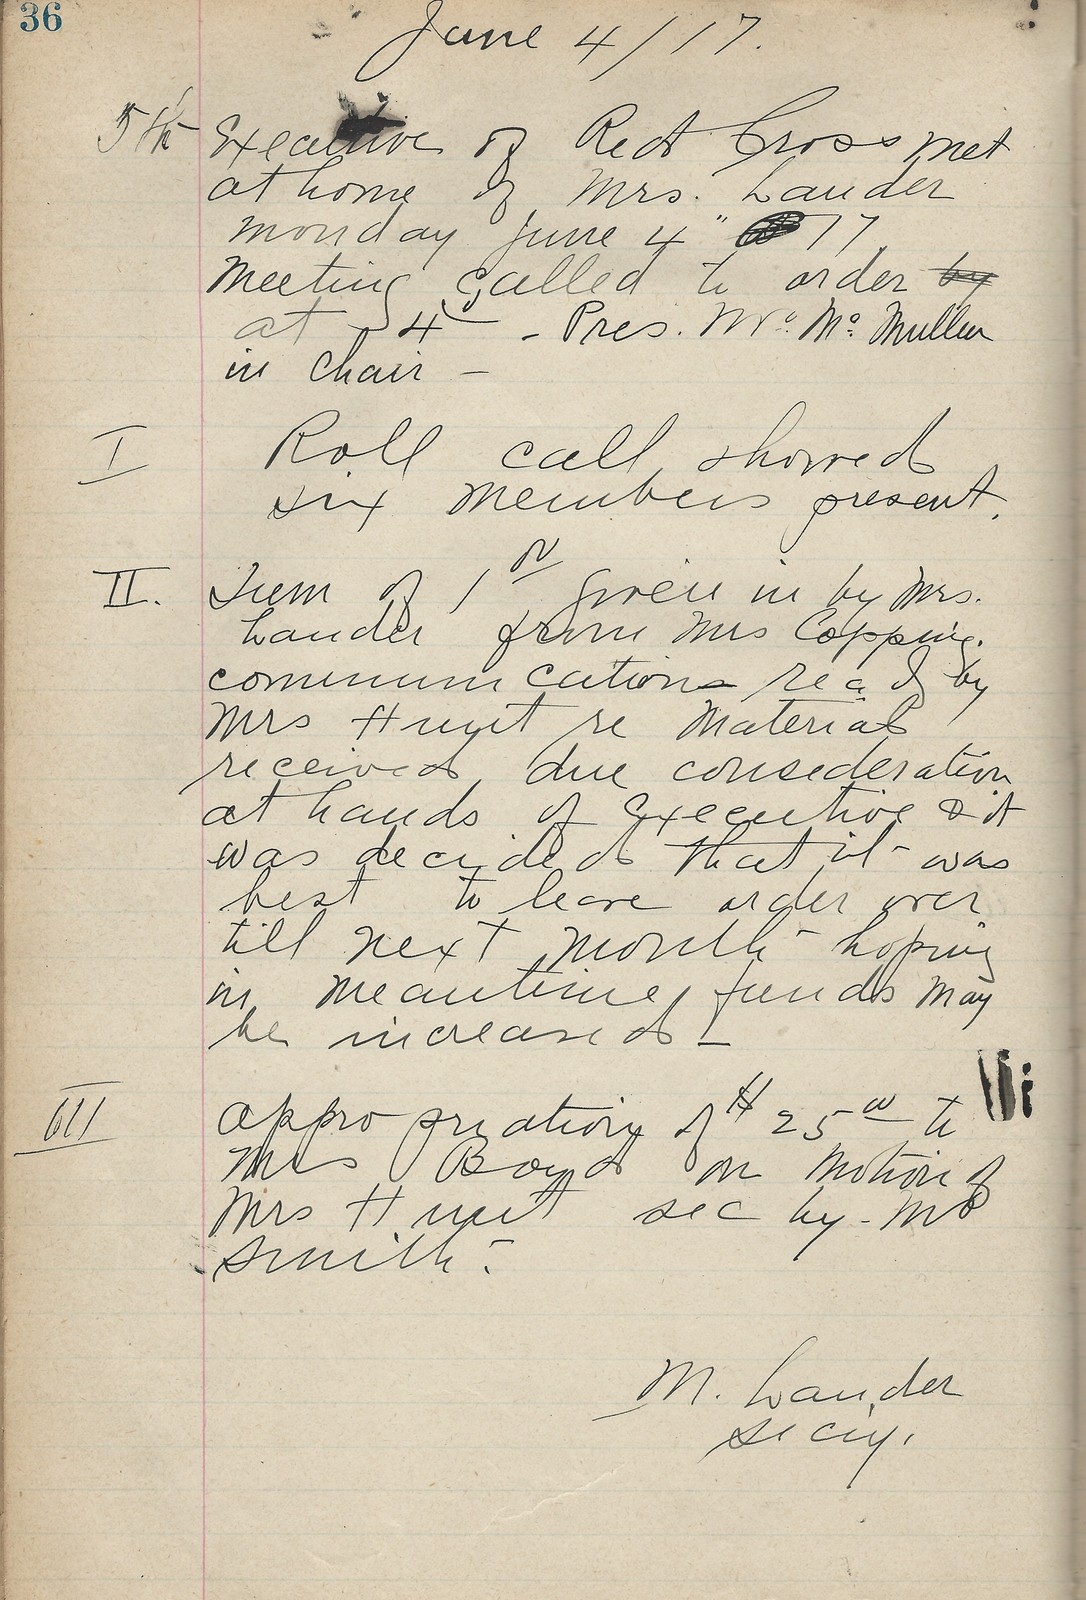 36
June 4/17.
5th Executive of Red Cross met
at home of Mrs. Lander
Monday June 4" 17.
Meeting called to order by
at 4 - Pres. Mrs. Mc Mullen
in Chair -
I Roll call showed
six members present.
II. Sum of 1 00 given in by Mrs.
Lander from Mrs Copping.
communications read by
Mrs Hunt re Material
received due consideration
at hands of Executive & it
was decided that it was
best to leave order over
till next month - hoping
in meantime funds may
be increased -
III appropriation of $ 25 00 to
Mrs Boyd on motion of
Mrs Hunt sec by - Mrs
Smith -
M. Lander
secy.